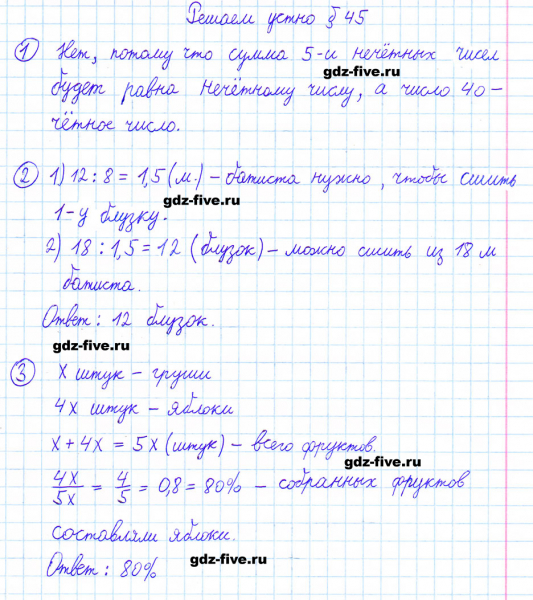 Решаем устно § 45
1 Нет, потому что сумма 5-и нечётных чисел
gdz-five.ru
будет равна нечётному числу, а число 40 -
чётное число.
2 1) 12 : 8 = 1,5 (м.) - батиста нужно, чтобы сшить
gdz-five.ru
1-у блузку.
2) 18 : 1,5 = 12 (блузок) - можно сшить из 18 м
батиста.
Ответ: 12 блузок.
gdz-five.ru
3 x штук - груши
4x штук - яблоки
x + 4x = 5x (штук) - всего фруктов.
gdz-five.ru
4x/5x = 4/5 = 0,8 = 80% - собранных фруктов
составляли яблоки.
gdz-five.ru
Ответ: 80%